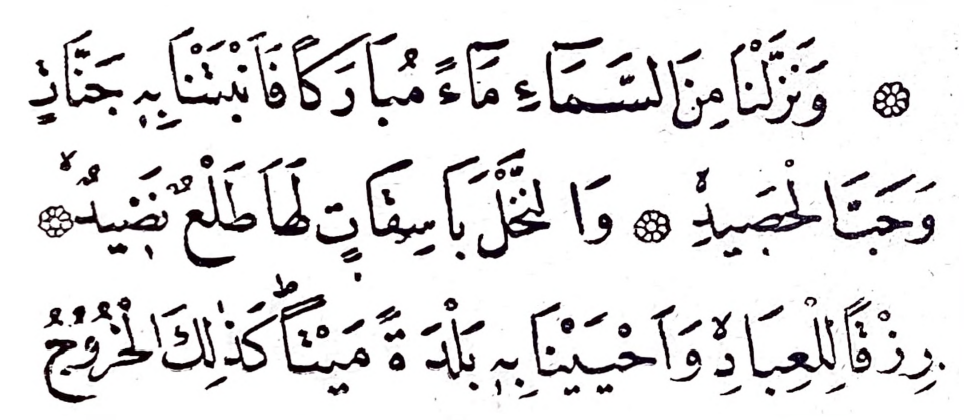 ۞ وَنَزَّلْنَا مِنَ السَّمَآءِ مَآءً مُبَارَكًا فَاَنْبَتْنَا بِهٖ جَنَّاتٍ
وَحَبَّ الْحَصٖيدِۙ ۞ وَالنَّخْلَ بَاسِقَاتٍ لَهَا طَلْعٌ نَضٖيدٌۙ ۞
رِزْقًا لِلْعِبَادِۙ وَاَحْيَيْنَا بِهٖ بَلْدَةً مَيْتًاؕ كَذٰلِكَ الْخُرُوجُ